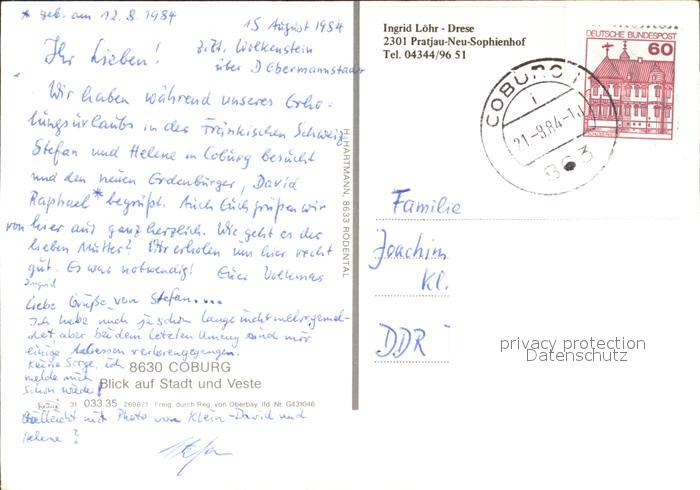 * geb. am 12.8.1984
15 August 1984
Ihr Lieben!
z.Zt. Wolkenstein
über D Ebermannstadt
Wir haben während unseres Erho-
lungsurlaubs in der Fränkischen Schweiz
Stefan und Helene in Coburg besucht
und den neuen Erdenbürger, David
Raphael * begrüßt. Auch Euch grüßen wir
von hier aus ganz herzlich. Wie geht es der
lieben Mutter? Wir erholen uns hier recht
gut. Es war notwendig! Euer Volkmar
Ingrid
Liebe Grüße von Stefan....
Ich habe mich ja schon lange nicht mehr gemel-
det aber bei dem letzten Umzug sind mir
einige Adressen verlorengegangen.
Keine Sorge, ich
melde mich
schon wieder!
8630 COBURG
Blick auf Stadt und Veste
31 033.35 269871 Freig. durch Reg. von Oberbay. lfd. Nr. G431046
Vielleicht mit Photo von Klein-David und
Helene?
H. HARTMANN, 8633 RÖDENTAL
Ingrid Löhr - Drese
2301 Pratjau-Neu-Sophienhof
Tel. 04344/96 51
DEUTSCHE BUNDESPOST
60
COBURG 1
21-8.84-1
863
Familie
Joachim
Kl.
DDR
privacy protection
Datenschutz